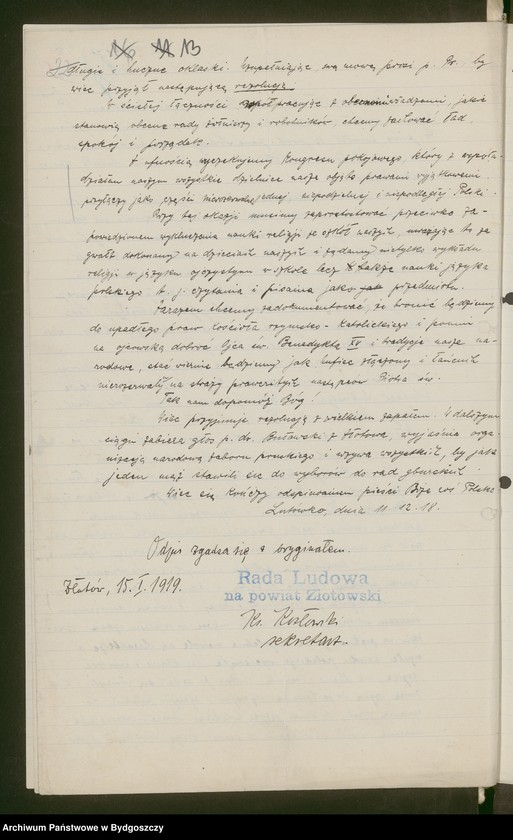 16 11 13
długie i huczne oklaski. Uzupełniając swą mowę prosi p. Dr. by
wiec przyjął następującą rezolucję.
W ścisłej łączności z jakie
stanowią obecne rady żołnierzy i robotników chcemy zachować ład
spokój i porządek.
Z ufnością wyczekujemy Kongresu pokojowego który z
wszystkie dzielnice nasze
przyłączy jako części jednej, niepodzielnej i niepodległej Polski.
Przy tej okazji musimy zaprotestować przeciwko za-
powiedzianem wykluczeniu nauki religji ze szkół naszych, uważając to za
gwałt dokonany na dzieciach naszych i żądamy nietylko wykładu
religji w języku ojczystym w szkole lecz także nauki języka
polskiego t. j. czytania i pisania jako przedmiotu.
Zarazem chcemy zadokumentować, że bronić będziemy
do upadłego praw Kościoła rzymsko-Katolickiego i pomni
na ojcowską dobroć Ojca św. Benedykta XV i tradycje nasze na-
rodowe, stać wiernie będziemy jak hufiec i łańcuch
nierozerwalny na straży praw Piotra św.
Tak nam dopomóż Bóg!
Wiec przyjmuje rezolucję z wielkiem zapałem. W dalszym
ciągu zabiera głos p. dr. z Złotowa, wyjaśnia orga-
nizację narodową zaboru pruskiego i wzywa wszystkich, by jak
jeden mąż stawili się do wyborów do rad
Wiec się kończy odśpiewaniem pieśni Boże coś Polskę
Lutówko, dnia 11.12.18.
Odpis zgadza się z oryginałem.
Złotów, 15.I.1919.
Rada Ludowa
na powiat Złotowski
Ks. Kozłowski
sekretarz.
Archiwum Państwowe w Bydgoszczy